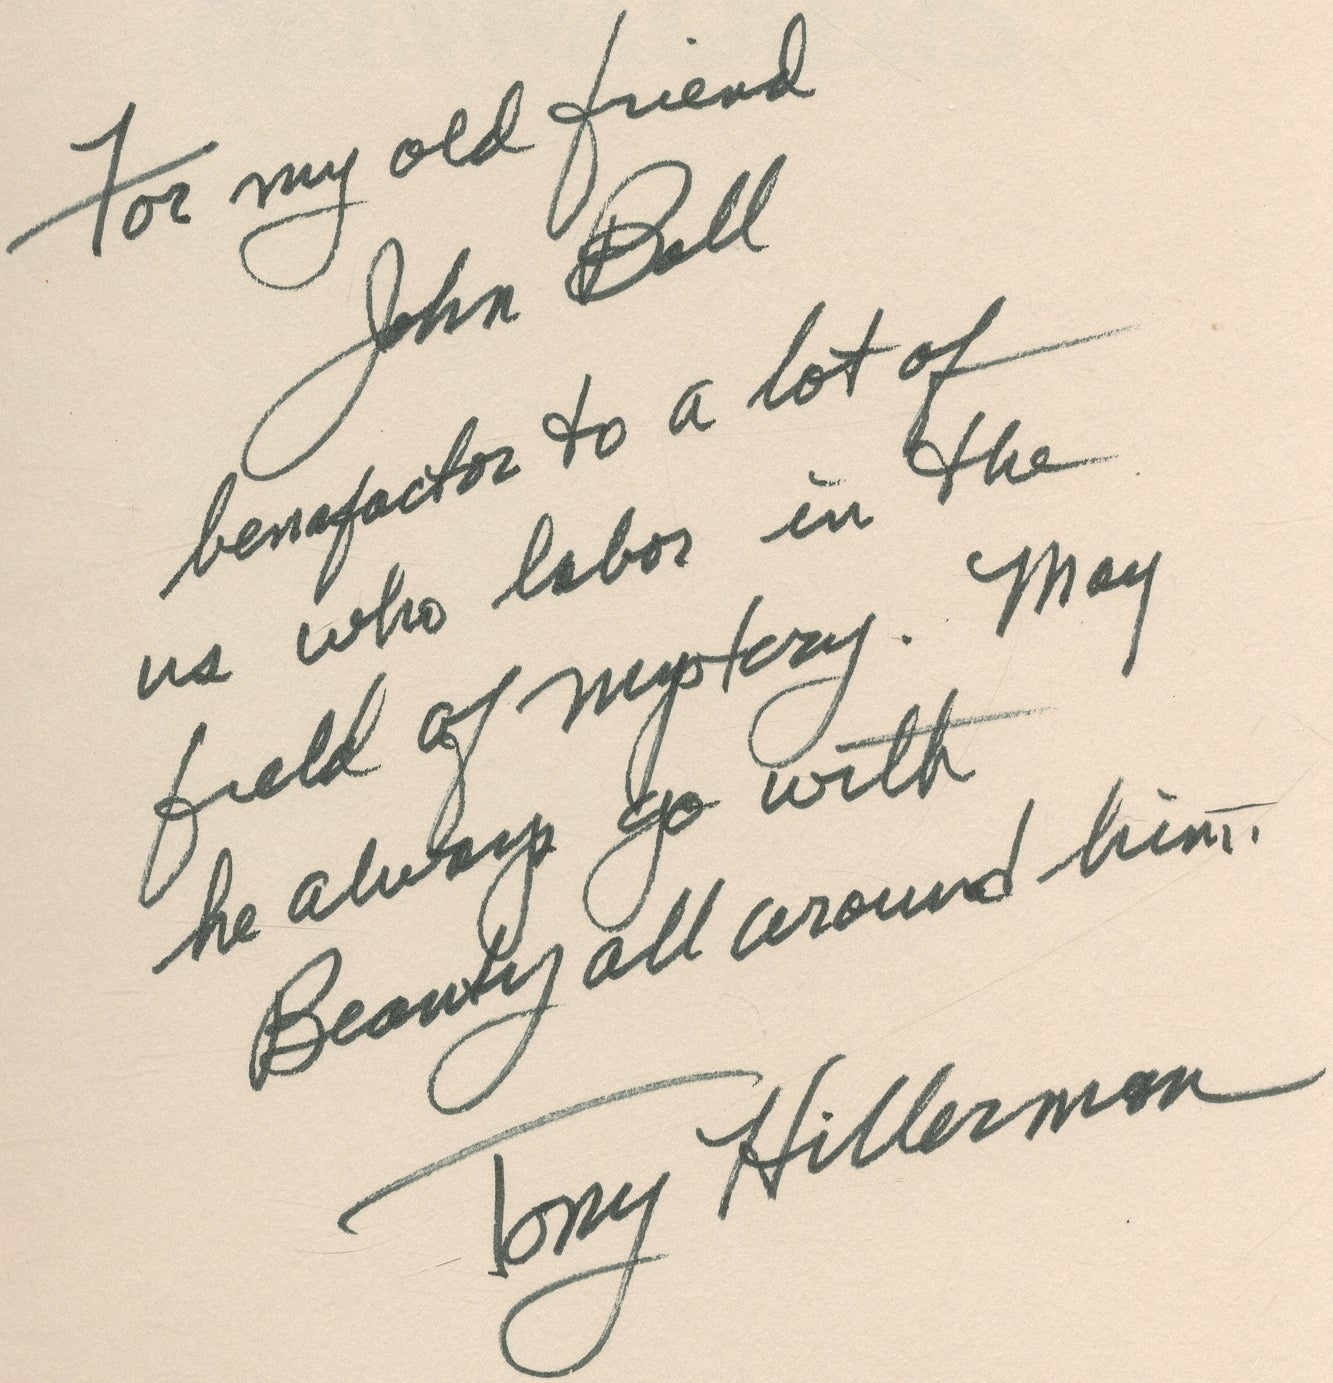 For my old friend
John Ball
benefactor to a lot of
us who labor in the
field of mystery. May
he always go with
Beauty all around him.
Tony Hillerman